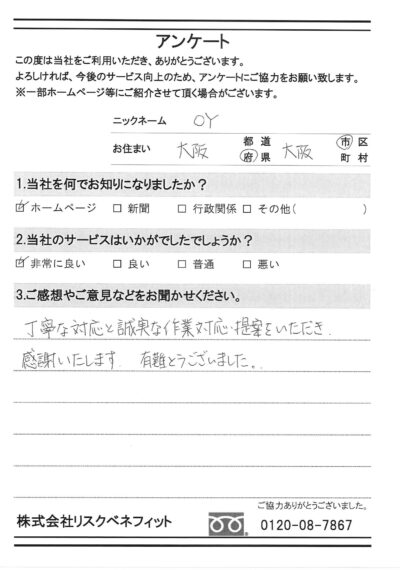 アンケート
この度は当社をご利用いただき、ありがとうございます。
よろしければ、今後のサービス向上のため、アンケートにご協力をお願い致します。
※一部ホームページ等にご紹介させて頂く場合がございます。
ニックネーム OY
お住まい 大阪 都道府県 大阪 市区町村
1.当社を何でお知りになりましたか？
☑ ホームページ □ 新聞 □ 行政関係 □ その他( )
2.当社のサービスはいかがでしたでしょうか？
☑ 非常に良い □ 良い □ 普通 □ 悪い
3.ご感想やご意見などをお聞かせください。
丁寧な対応と誠実な作業対応・提案をいただき、
感謝いたします。 有難とうございました。
ご協力ありがとうございました。
株式会社リスクベネフィット 0120-08-7867